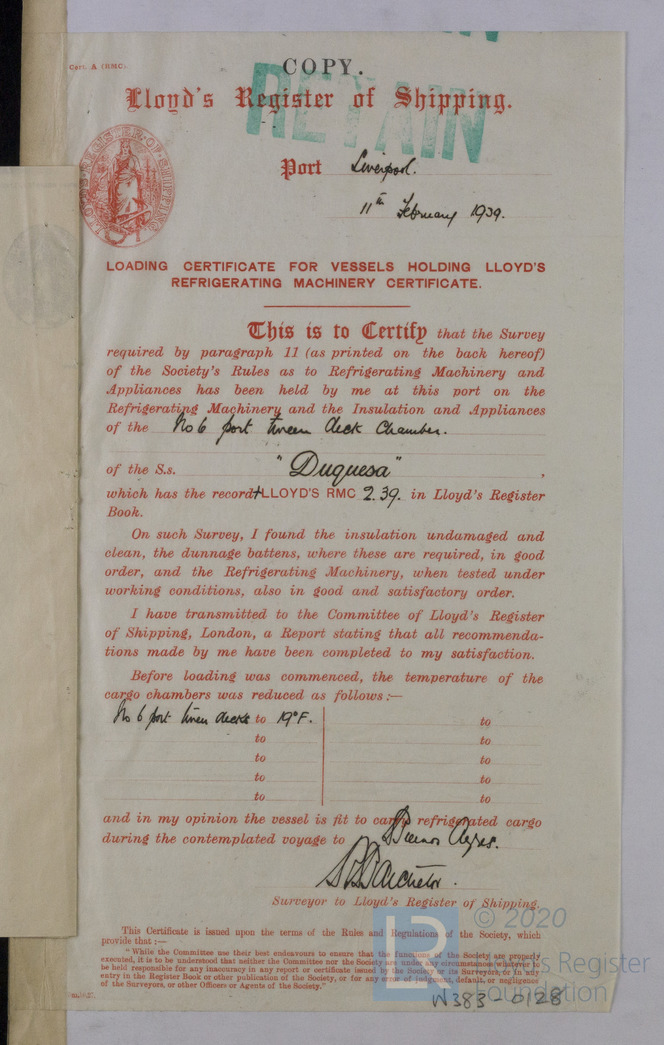 Cert. A (RMC).
COPY.
RETAIN
Lloyd's Register of Shipping.
LLOYD'S REGISTER OF SHIPPING
Port Liverpool.
11th February 1939.
LOADING CERTIFICATE FOR VESSELS HOLDING LLOYD'S
REFRIGERATING MACHINERY CERTIFICATE.
This is to Certify that the Survey
required by paragraph 11 (as printed on the back hereof)
of the Society's Rules as to Refrigerating Machinery and
Appliances has been held by me at this port on the
Refrigerating Machinery and the Insulation and Appliances
of the No 6 port tween deck Chamber.
of the S.s. "Duquesa",
which has the record +LLOYD'S RMC 2.39. in Lloyd's Register
Book.
On such Survey, I found the insulation undamaged and
clean, the dunnage battens, where these are required, in good
order, and the Refrigerating Machinery, when tested under
working conditions, also in good and satisfactory order.
I have transmitted to the Committee of Lloyd's Register
of Shipping, London, a Report stating that all recommenda-
tions made by me have been completed to my satisfaction.
Before loading was commenced, the temperature of the
cargo chambers was reduced as follows:—
No 6 port tween decks to 19°F. to
to to
to to
to to
to to
and in my opinion the vessel is fit to carry refrigerated cargo
during the contemplated voyage to Buenos Ayres.
Surveyor to Lloyd's Register of Shipping.
This Certificate is issued upon the terms of the Rules and Regulations of the Society, which
provide that:—
"While the Committee use their best endeavours to ensure that the functions of the Society are properly
executed, it is to be understood that neither the Committee nor the Society are under any circumstances whatever to
be held responsible for any inaccuracy in any report or certificate issued by the Society or its Surveyors, or in any
entry in the Register Book or other publication of the Society, or for any error of judgment, default, or negligence
of the Surveyors, or other Officers or Agents of the Society."
LR
© 2020
Lloyd's Register
Foundation
W383-0128